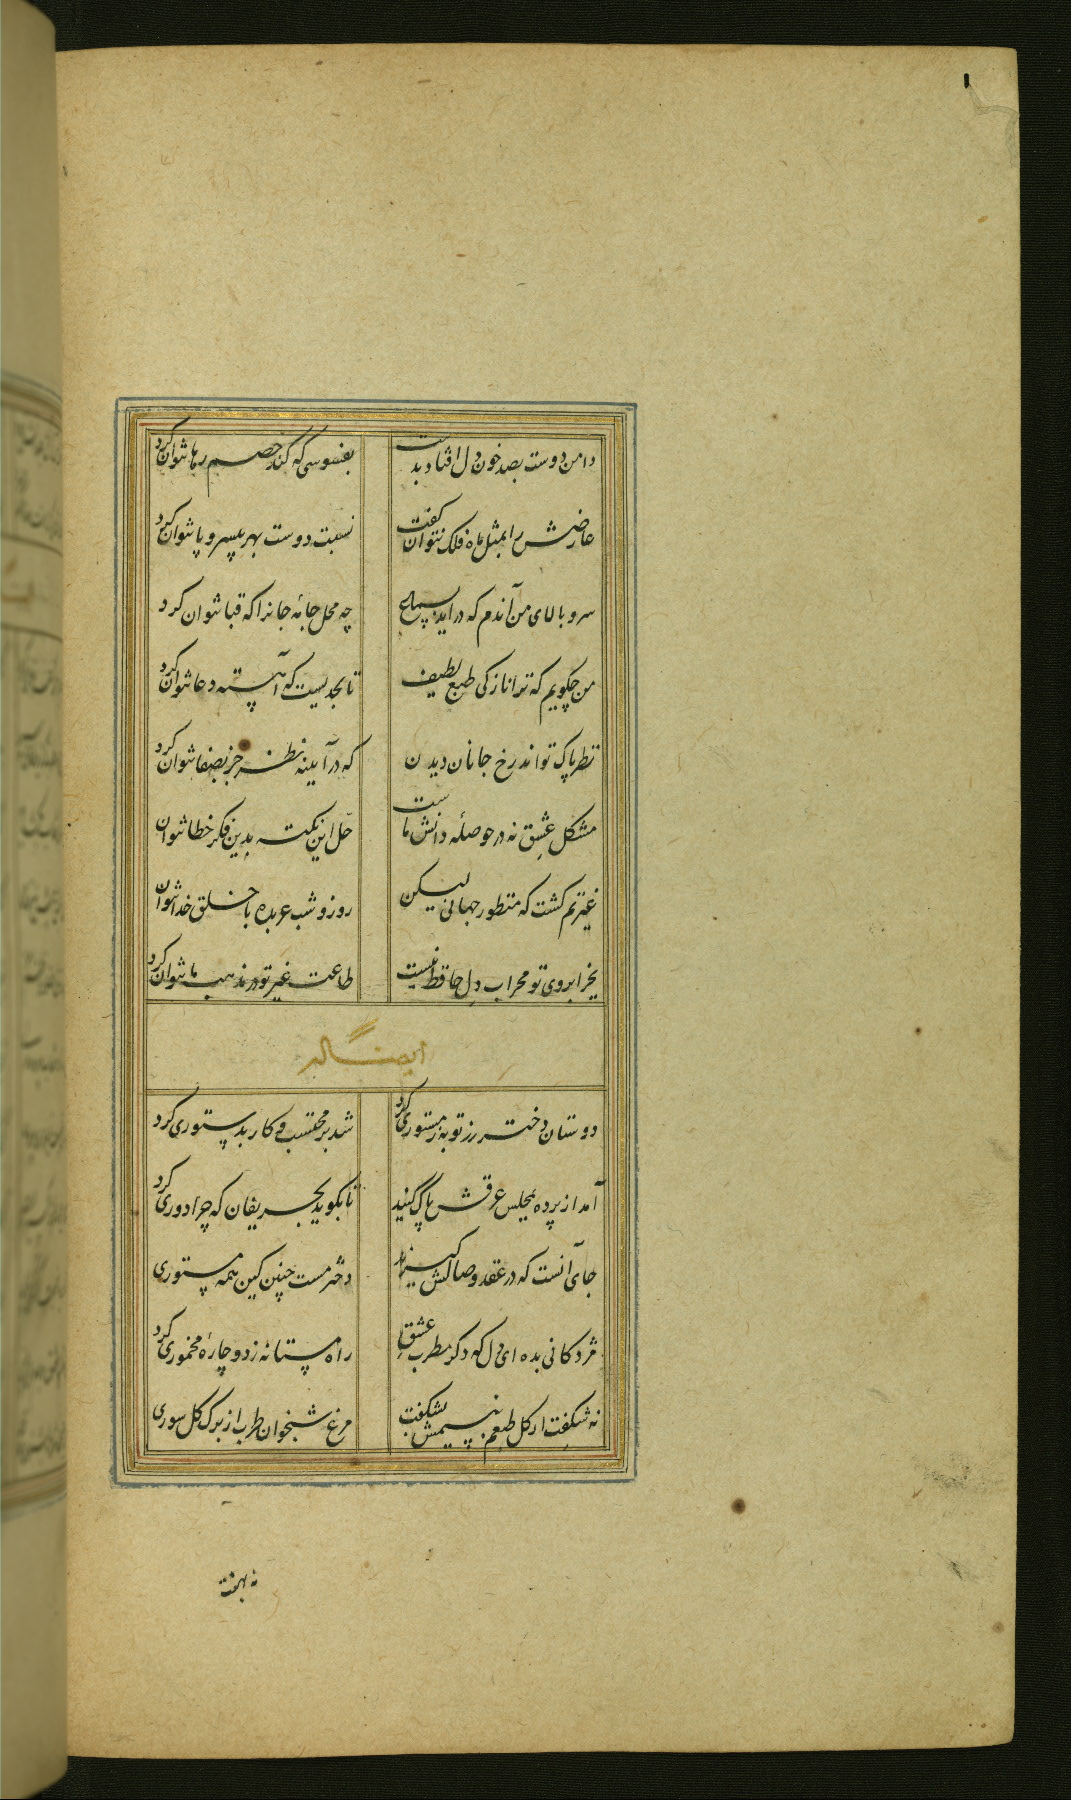 دامن دوست بصد خون دل افتاد بدست
بفسوسی که کند خصم رها نتوان کرد
عارضش را بمثل ماه فلک نتوان گفت
نسبت دوست بهر بیسر و پا نتوان کرد
سرو بالای من آندم که درآید بسماع
چه محل جامهٔ جانرا که قبا نتوان کرد
من چگویم که ترا نازکی طبع لطیف
تا بحدیست که آهسته دعا نتوان کرد
نظر پاک تواند رخ جانان دیدن
که در آیینه نظر جز بصفا نتوان کرد
مشکل عشق نه در حوصلهٔ دانش ماست
حل این نکته بدین فکر خطا نتوان
غیرتم کشت که منظور جهانی لیکن
روز و شب عربده با خلق خدا نتوان
بجز ابروی تو محراب دل حافظ نیست
طاعت غیر تو در مذهب ما نتوان کرد
ایضاً له
دوستان دختر رز توبه ز مستوری کرد
شد بر محتسب و کار بدستوری کرد
آمد از پرده بمجلس عرقش پاک کنید
تا بگوید بحریفان که چرا دوری کرد
جای آنست که در عقد وصالش گیرند
دختر مست چنین کین همه مستوری
مژدکانی بده ای دل که دگر مطرب عشق
راه مستانه زد و چارهٔ مخموری کرد
نه شگفت ار گل طبعم ز نسیمش بشکفت
مرغ شبخوان طرب از برگ گل سوری
نه بهفت